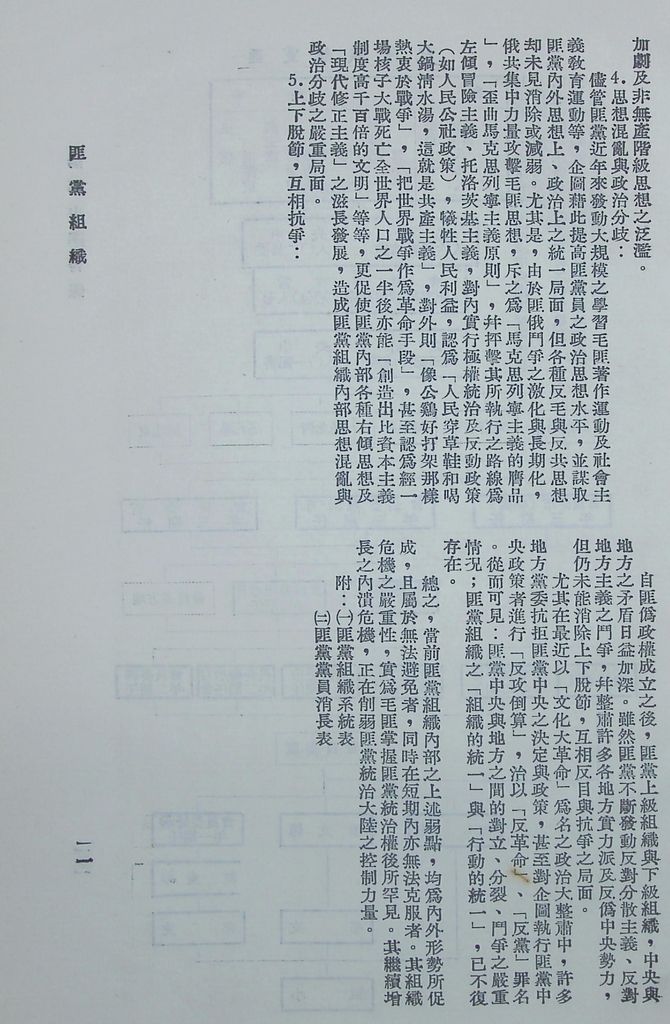 加劇及非無產階級思想之泛濫。
4.思想混亂與政治分歧：
儘管匪黨近年來發動大規模之學習毛匪著作運動及社會主
義教育運動等，企圖藉此提高匪黨員之政治思想水平，並謀取
匪黨內外思想上、政治上之統一局面，但各種反毛與反共思想
却未見消除或減弱。尤其是，由於匪俄鬥爭之激化與長期化，
俄共集中力量攻擊毛匪思想，斥之為「馬克思列寧主義的贗品
」，「歪曲馬克思列寧主義原則」，幷抨擊其所執行之路線為
左傾冒險主義、托洛茨基主義，對內實行極權統治及反動政策
（如人民公社政策），犧牲人民利益，認為「人民穿草鞋和喝
大鍋清水湯，這就是共產主義」，對外則「像公鷄好打架那樣
熱衷於戰爭」，「把世界戰爭作為革命手段」，甚至認為經一
場核子大戰死亡全世界人口之一半後亦能「創造出比資本主義
制度高千百倍的文明」等等，更促使匪黨內部各種右傾思想及
「現代修正主義」之滋長發展，造成匪黨組織內部思想混亂與
政治分歧之嚴重局面。
5.上下脫節，互相抗爭：
自匪偽政權成立之後，匪黨上級組織與下級組織，中央與
地方之矛盾日益加深。雖然匪黨不斷發動反對分散主義、反對
地方主義之鬥爭，幷整肅許多各地方實力派及反偽中央勢力，
但仍未能消除上下脫節，互相反目與抗爭之局面。
尤其在最近以「文化大革命」為名之政治大整肅中，許多
地方黨委抗拒匪黨中央之決定與政策，甚至對企圖執行匪黨中
央政策者進行「反攻倒算」，治以「反革命」、「反黨」罪名
。從而可見：匪黨中央與地方之間的對立、分裂、鬥爭之嚴重
情況；匪黨組織之「組織的統一」與「行動的統一」，已不復
存在。
總之，當前匪黨組織內部之上述弱點，均為內外形勢所促
成，且屬於無法避免者，同時在短期內亦無法克服者。其組織
危機之嚴重性，實為毛匪掌握匪黨統治權後所罕見。其繼續增
長之內潰危機，正在削弱匪黨統治大陸之控制力量。
附：㈠匪黨組織系統表
㈡匪黨黨員消長表
匪黨組織
二一